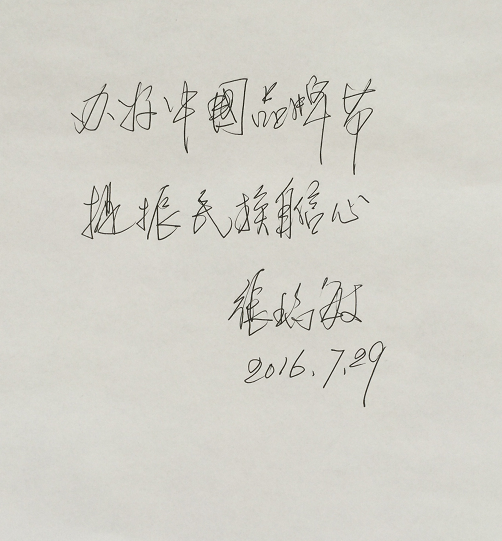 办好中國品牌节
提振民族自信心
張瑞敏
2016.7.29